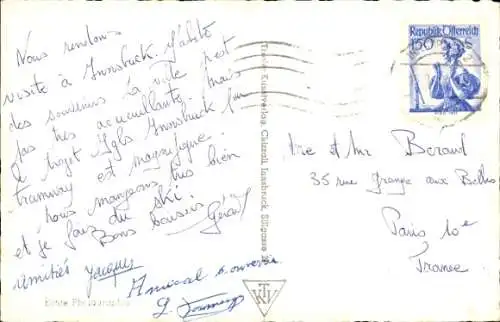 Nous rendons
visite à Innsbruck. J'achète
des souvenirs. La ville n'est
pas très accueillante, mais
le trajet Igls Innsbruck en
tramway est magnifique.
Nous mangeons très bien
et je fais du ski
Bons baisers Gérard
amitiés Jacques
Amical souvenir
Echte Photographie
Tiroler Kunstverlag Chizzali, Innsbruck, Sillgasse
TKV
Republik Österreich
1.50
Mme et Mr Beraud
35 rue Grange aux Belles
Paris 10e
France